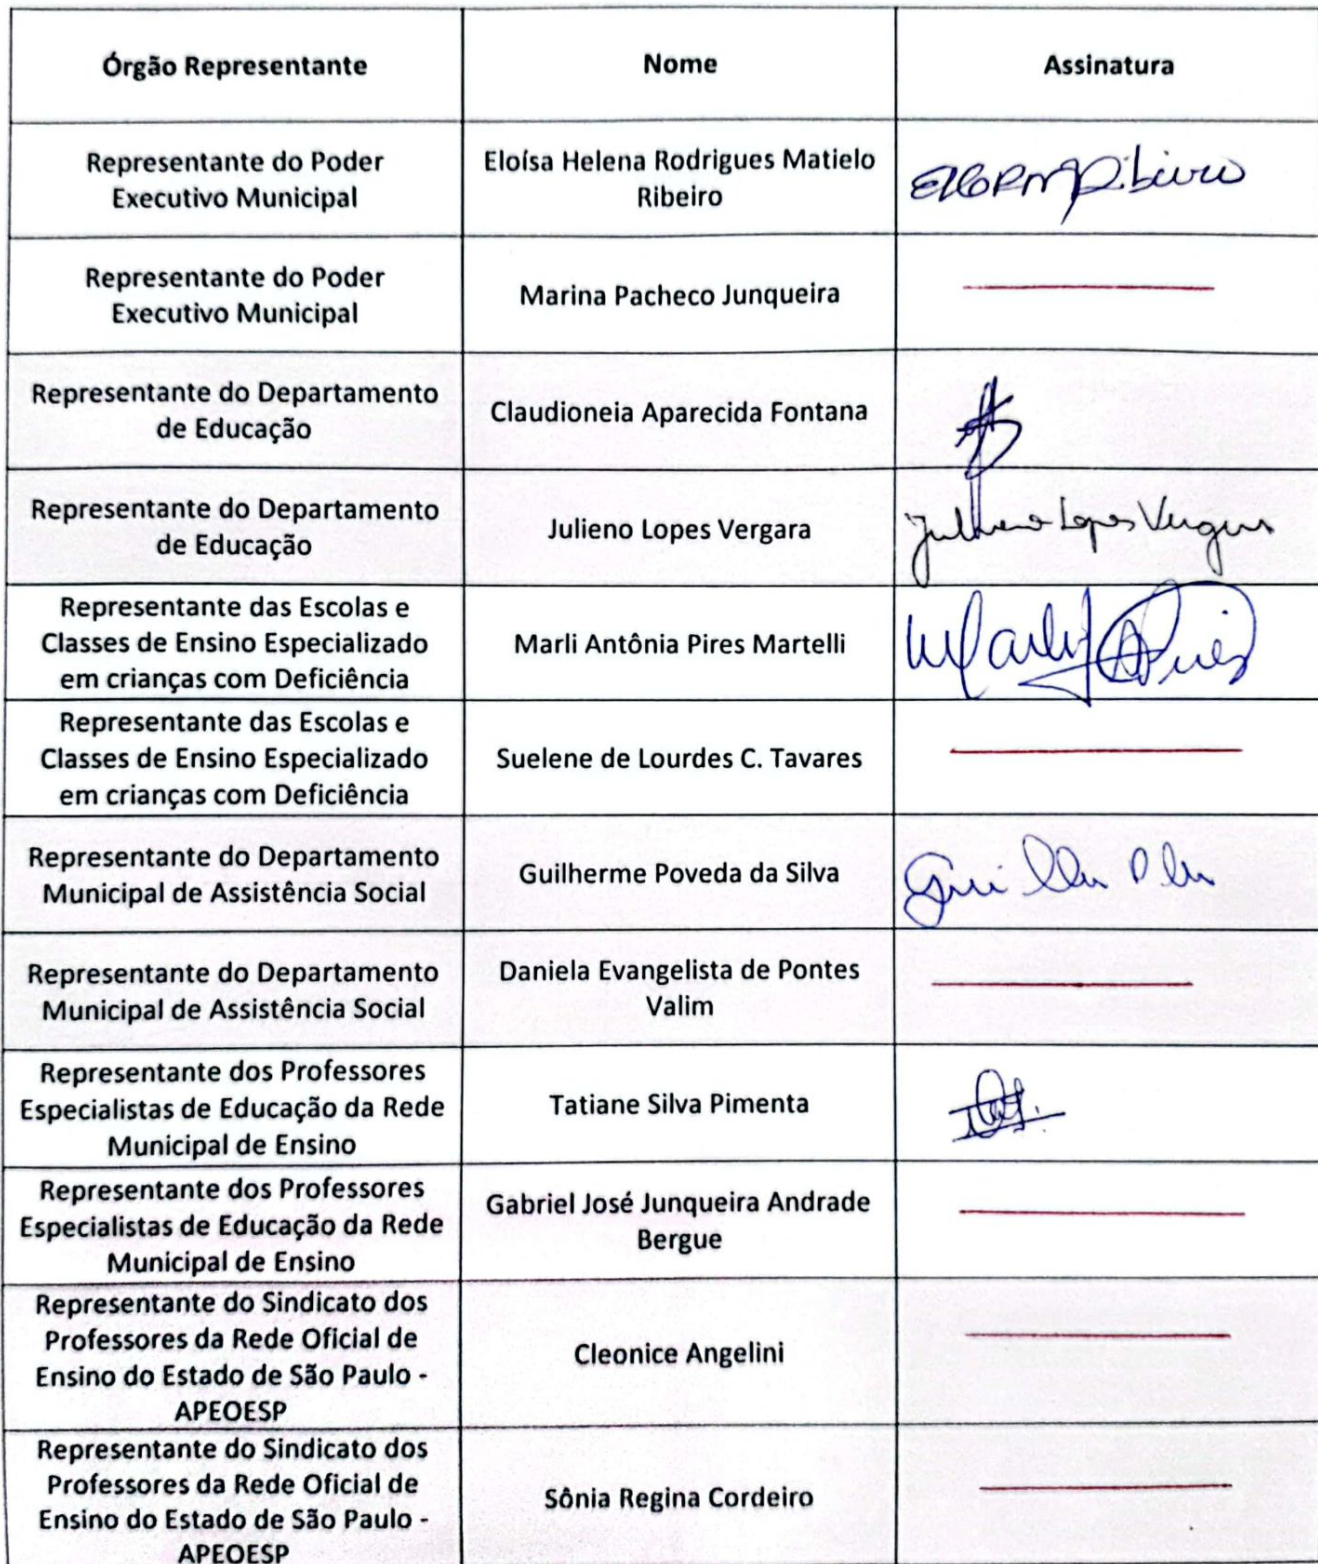 Órgão Representante
Nome
Assinatura
Representante do Poder
Executivo Municipal
Eloísa Helena Rodrigues Matielo
Ribeiro
Ribeiro
Representante do Poder
Executivo Municipal
Marina Pacheco Junqueira
Representante do Departamento
de Educação
Claudioneia Aparecida Fontana
Representante do Departamento
de Educação
Julieno Lopes Vergara
Julieno Lopes Vergara
Representante das Escolas e
Classes de Ensino Especializado
em crianças com Deficiência
Marli Antônia Pires Martelli
Marli A Pires
Representante das Escolas e
Classes de Ensino Especializado
em crianças com Deficiência
Suelene de Lourdes C. Tavares
Representante do Departamento
Municipal de Assistência Social
Guilherme Poveda da Silva
Representante do Departamento
Municipal de Assistência Social
Daniela Evangelista de Pontes
Valim
Representante dos Professores
Especialistas de Educação da Rede
Municipal de Ensino
Tatiane Silva Pimenta
Representante dos Professores
Especialistas de Educação da Rede
Municipal de Ensino
Gabriel José Junqueira Andrade
Bergue
Representante do Sindicato dos
Professores da Rede Oficial de
Ensino do Estado de São Paulo -
APEOESP
Cleonice Angelini
Representante do Sindicato dos
Professores da Rede Oficial de
Ensino do Estado de São Paulo -
APEOESP
Sônia Regina Cordeiro